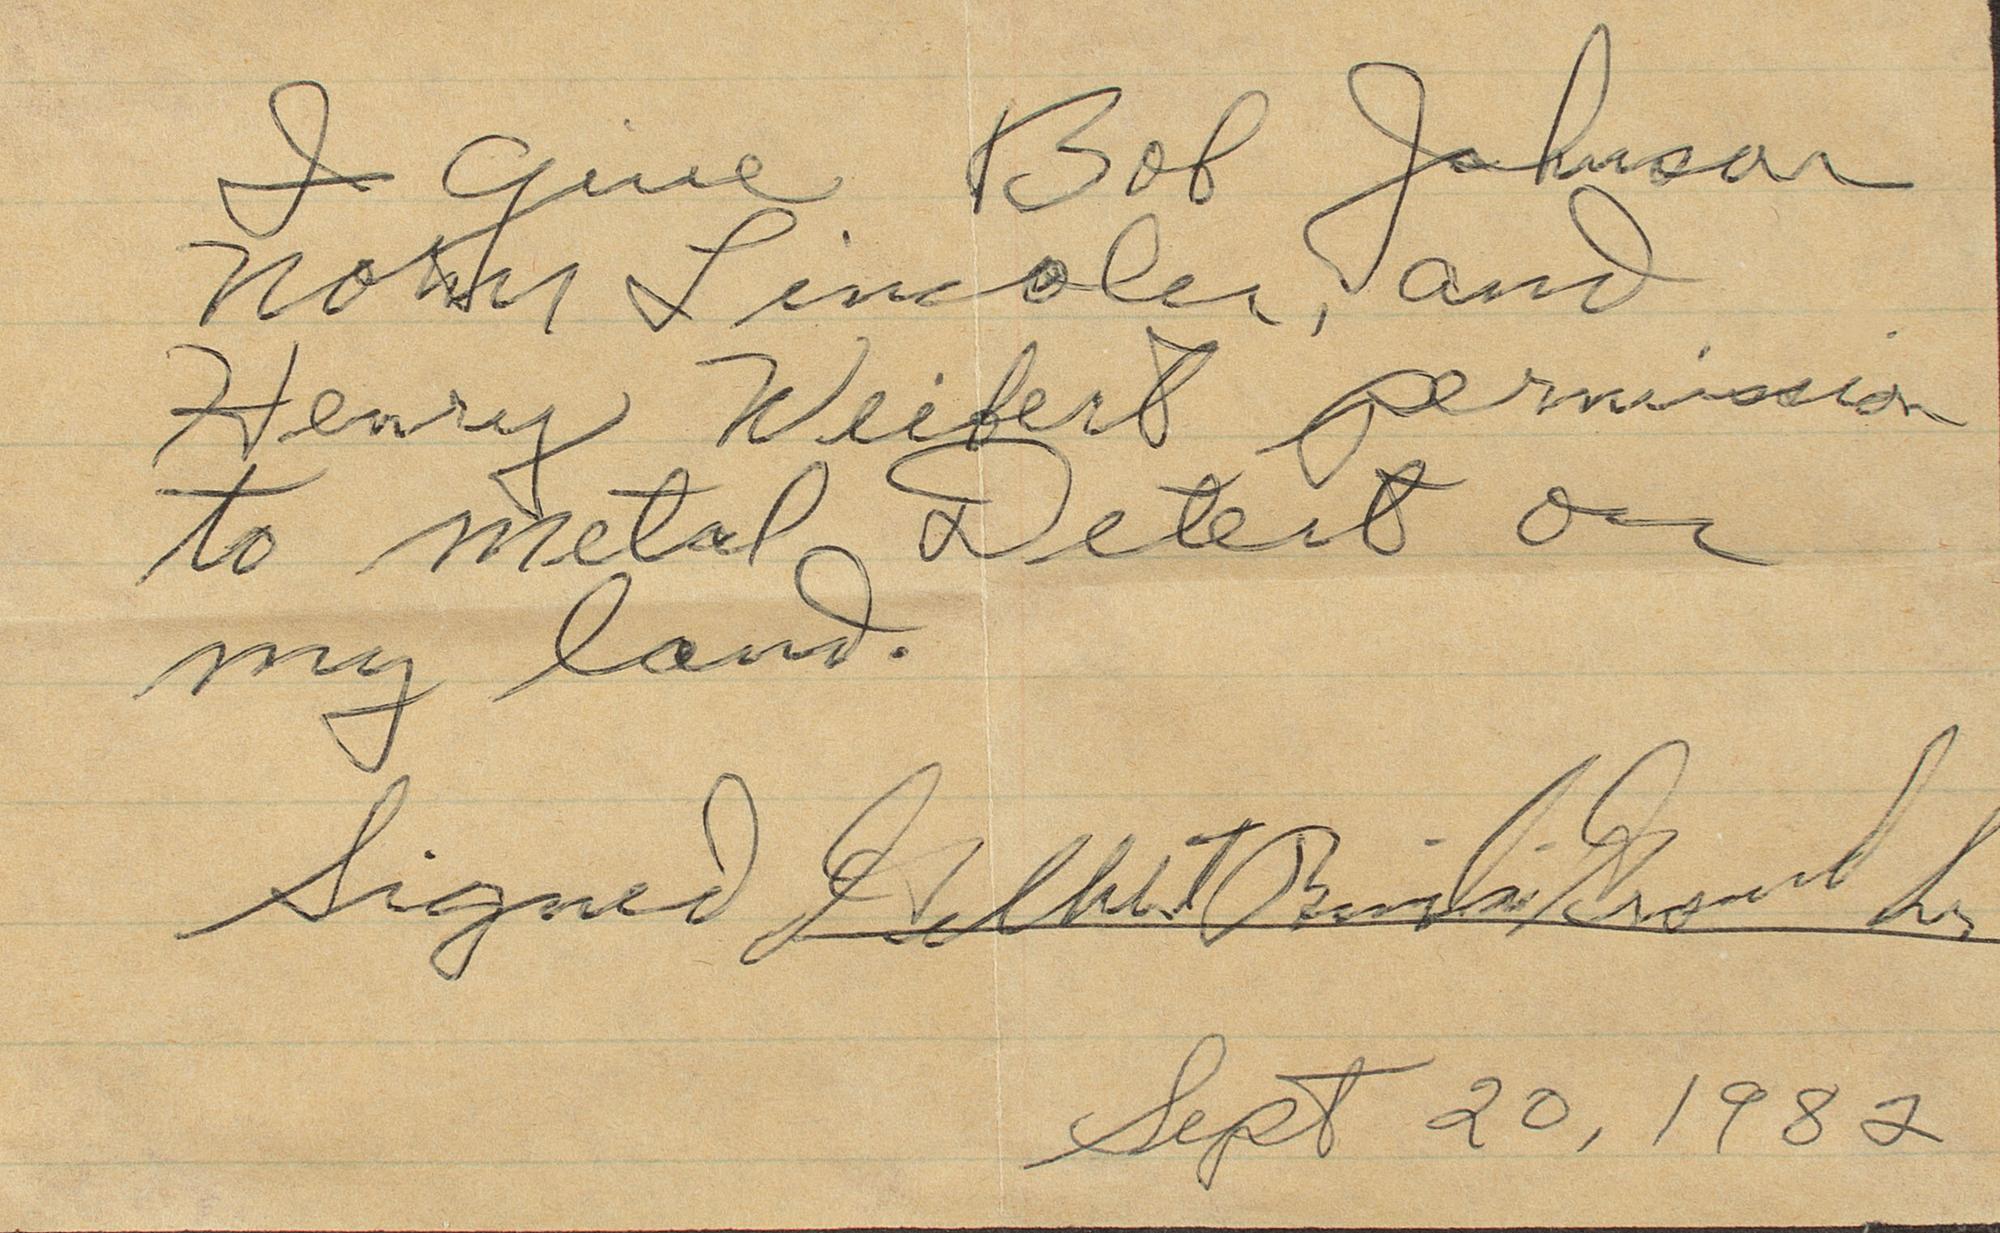 I give Bob Johnson
Norm Lincoln, and
Henry Weifert permission
to metal Detect on
my land.
Signed
Sept 20, 1982